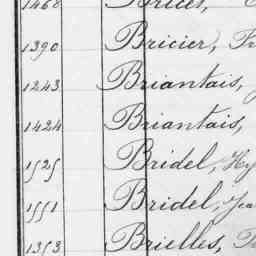 1468 Brices,
1390 Bricier, Fr
1243 Briantais, J
1424 Briantais,
1525 Bridel, Hy
1551 Bridel, Jea
1353 Brielles,